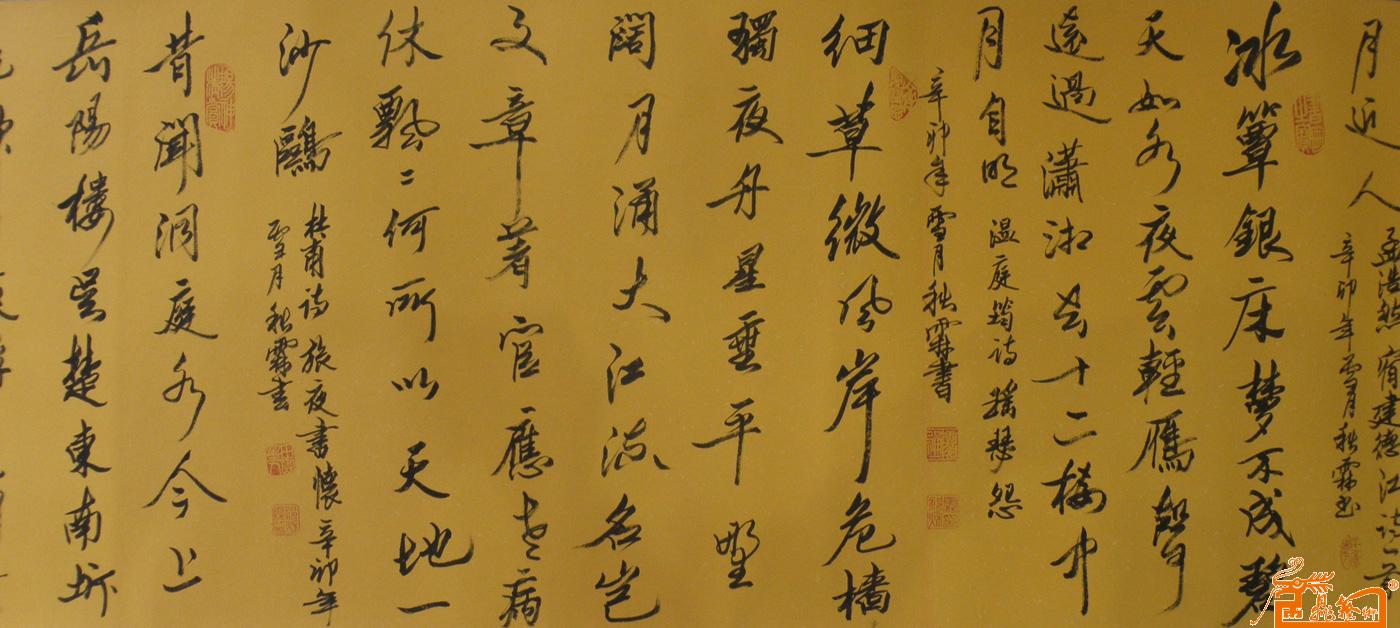 月近人
孟浩然 宿建德江
辛卯年雪月秋霖书
冰簟銀床梦不成碧
天如水夜雲輕雁聲
遠過瀟湘去十二楼中
月自明
温庭筠诗 瑶瑟怨
辛卯年雪月秋霖書
细草微风岸危樯
獨夜舟星垂平野
阔月涌大江流名岂
文章著官應老病
休飘飘何所以天地一
沙鷗
杜甫诗 旅夜書懷 辛卯年
雪月秋霖書
昔聞洞庭水今上
岳陽楼吴楚東南坼